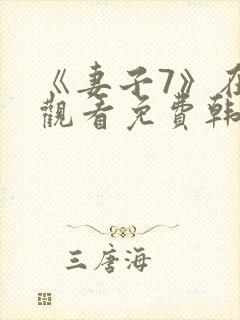 《妻子7》在
觀看免費韓
三唐海